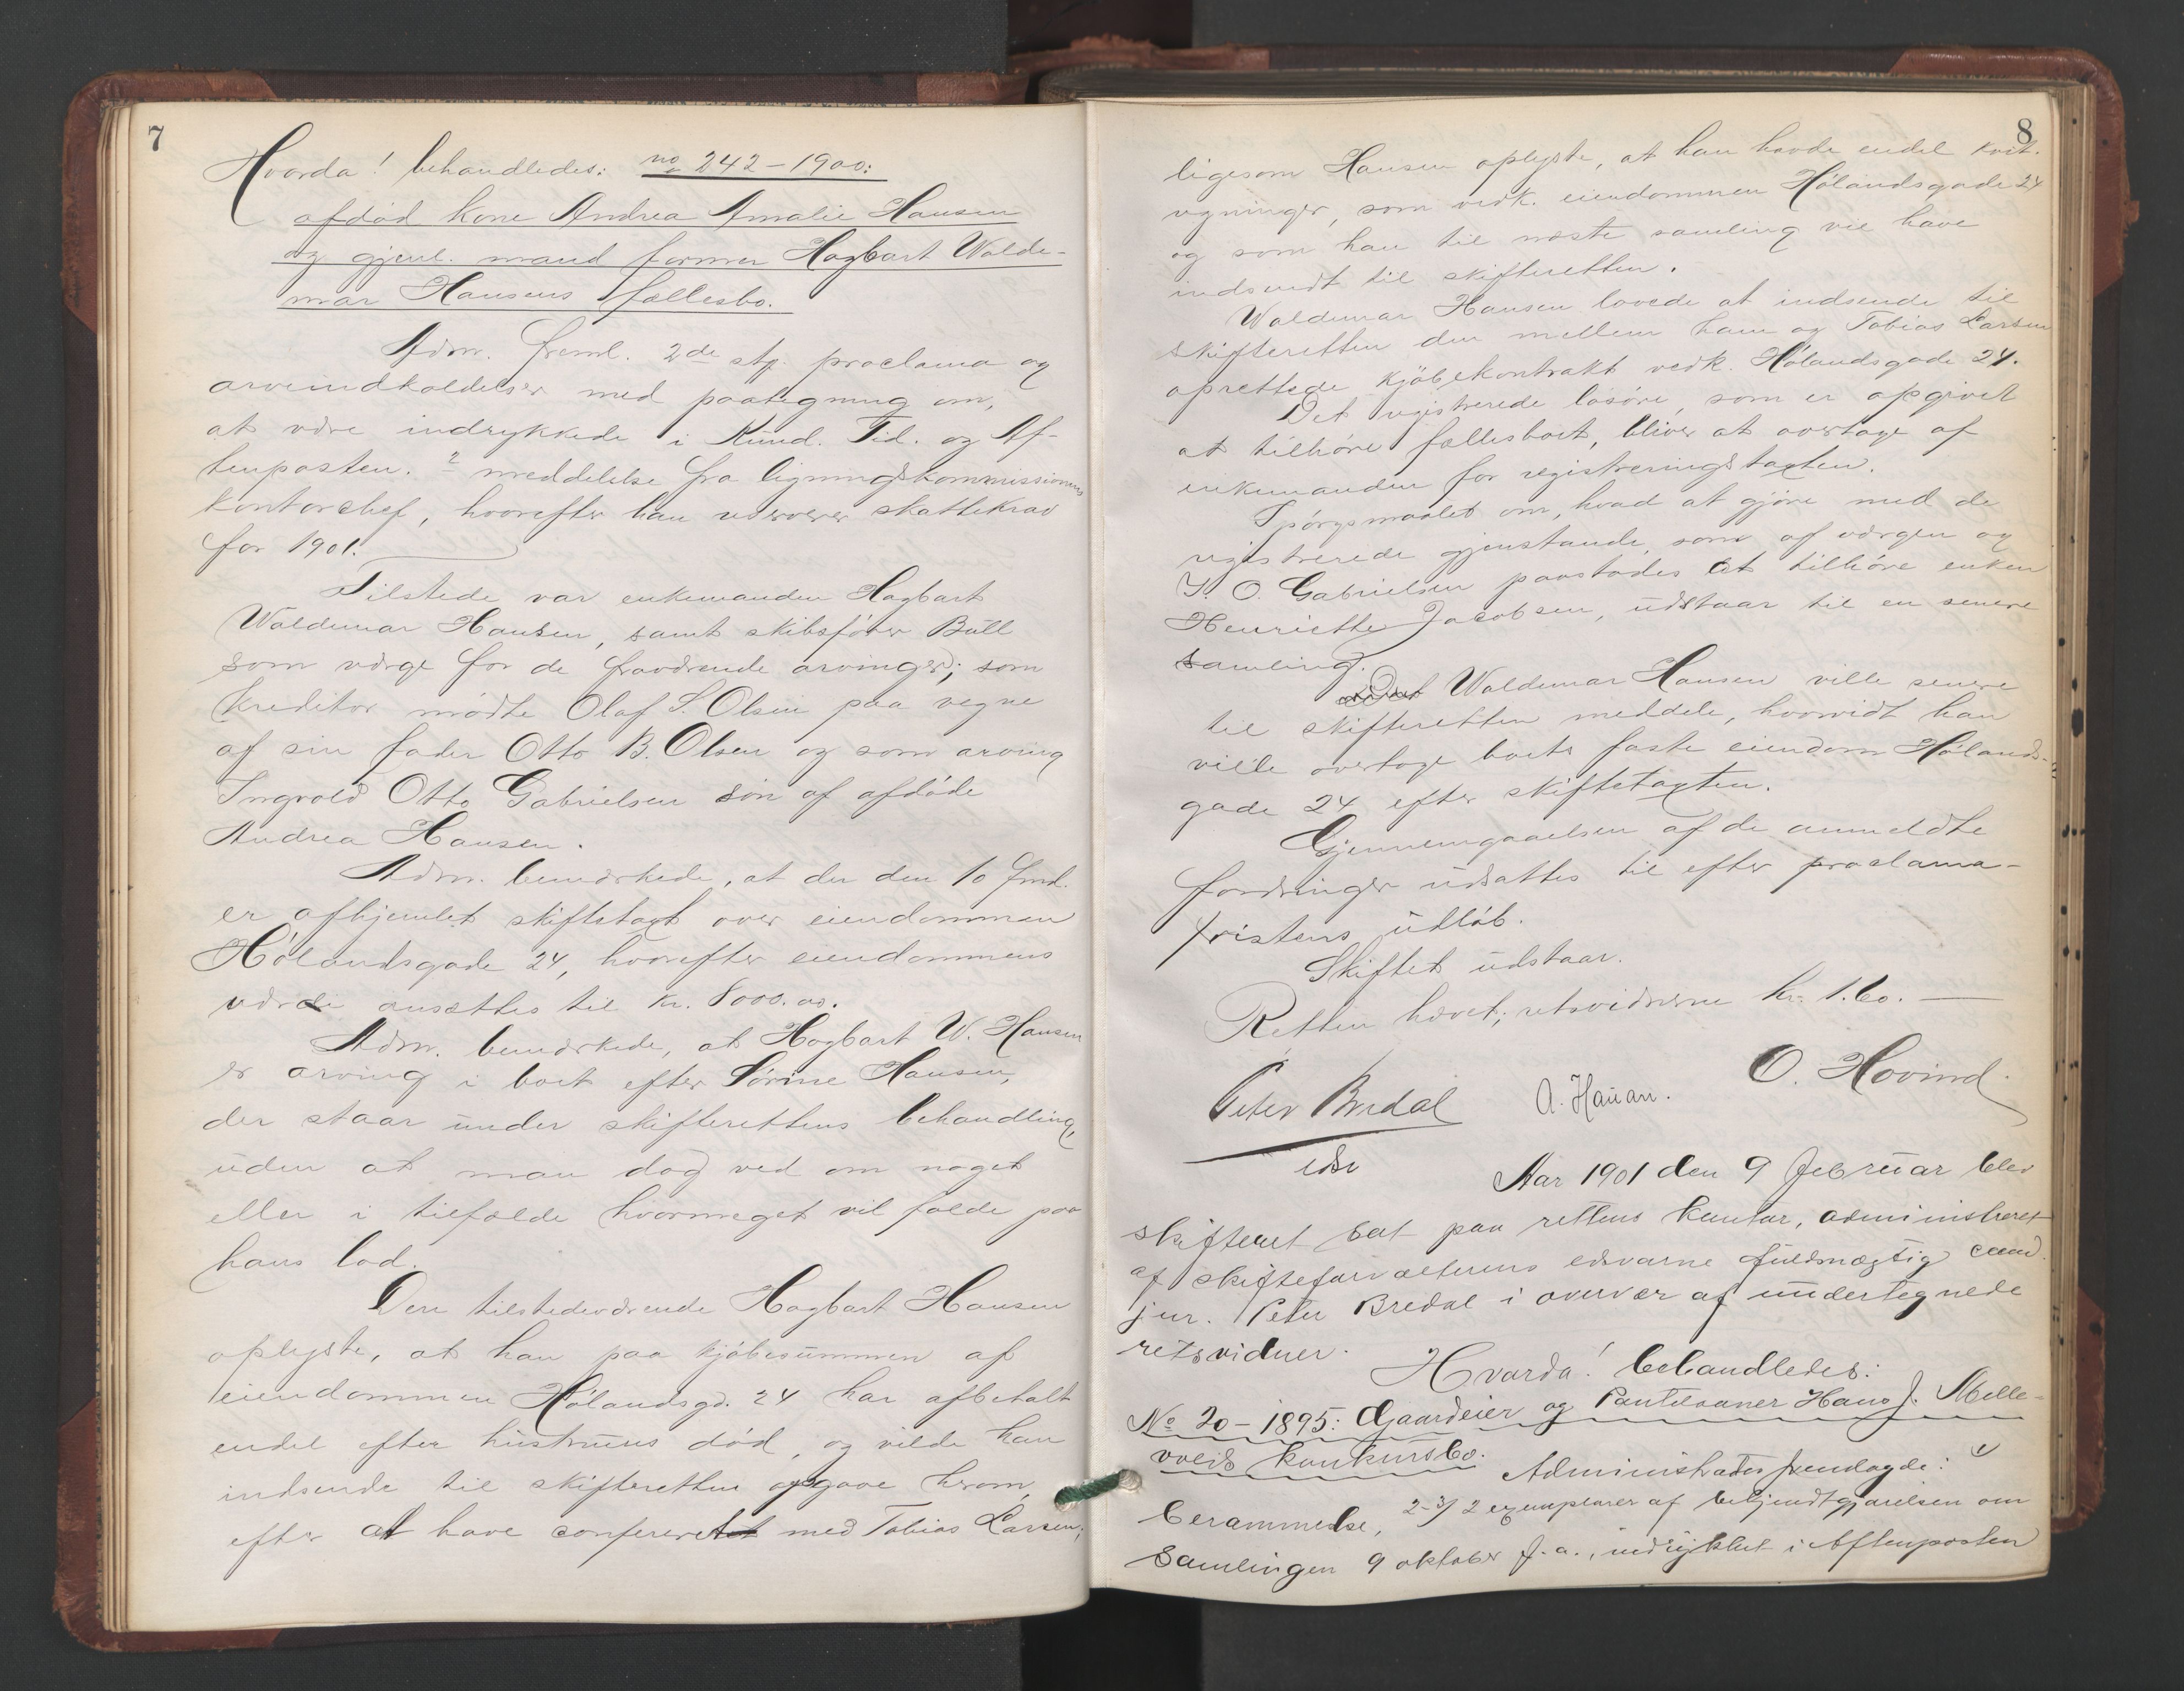 7
Hvorda! behandledes: no 242-1900:
afdød kone Andrea Amalie Hansen
og gjenl. mand former Hagbart Walde-
mar Hansens fællesbo.
Adm. freml. 2de stp. proclama og
arveindkaldelser med paategning om,
at være indrykkede i Kund. Tid. og Af-
tenposten. 2 meddelelse fra ligningskommissionens
kontorchef, hvorefter han reserverer skattekrav
for 1901.
Tilstede var enkemanden Hagbart
Waldemar Hansen, samt skibsfører Bull
som værge for de fraværende arvinger; som
kreditor mødte Olaf S. Olsen paa vegne
af sin fader Otto B. Olsen og som arving
Ingvald Otto Gabrielsen søn af afdøde
Andrea Hansen.
Adm. bemærkede, at der den 10 fmd.
er afhjemlet skiftetaxt over eiendommen
Hølandsgade 24, hvorefter eiendommens
værdi ansættes til kr. 8000.00.
Adm. bemærkede, at Hagbart W. Hansen
er arving i boet efter Sørine Hansen,
der staar under skifterettens behandling,
uden at man dog ved om noget
eller i tilfælde hvormeget vil falde paa
hans lod.
Den tilstedeværende Hagbart Hansen
oplyste, at han paa kjøbesummen af
eiendommen Hølandsgd. 24 har afbetalt
endel efter hustruens død, og vilde han
indsende til skifteretten opgave herom,
efter at have confereret med Tobias Larsen;
8
ligesom Hansen oplyste, at han havde endel kvit.
regninger, som vedk. eiendommen Hølandsgade 24
og som han til næste samling vil have
indsendt til skifteretten.
Waldemar Hansen lovede at indsende til
skifteretten den mellem ham og Tobias Larsen
oprettede kjøbekontrakt vedk. Hølandsgade 24.
Det registrerede løsøre, som er opgivet
at tilhøre fællesboet, bliver at overtage af
enkemanden for registreringstaxten.
Spørgsmaalet om, hvad at gjøre med de
registrerede gjenstande, som af værgen og
I. O. Gabrielsen paastodes at tilhøre enken
Henriette Jacobsen, udstaar til en senere
samling.
Waldemar Hansen ville senere
til skifteretten meddele, hvorvidt han
ville overtage boets faste eiendom Hølands-
gade 24 efter skiftetaxten.
Gjennemgaaelsen af de anmeldte
fordringer udsattes til efter proclama-
fristens udløb.
Skiftet udstaar.
Retten hævet; retsvidnerne kr. 1.60.
Peter Bredal A. Hauan. O. Hovind.
edsv
Aar 1901 den 9 februar blev
skifteret sat paa rettens kontor, administreret
af skifteforvalterens edsvorne fuldmægtig cand.
jur. Peter Bredal i overvær af undertegnede
retsvidner.
Hvorda! behandledes:
No 20-1895: Gaardeier og Pantelaaner Hans J. Melle-
volds konkursbo.
Administrator fremlagde: 1)
berammelse, 2-3) 2 exemplarer af bekjendtgjørelsen om
Samlingen 9 oktober f.a., indrykket i Aftenposten